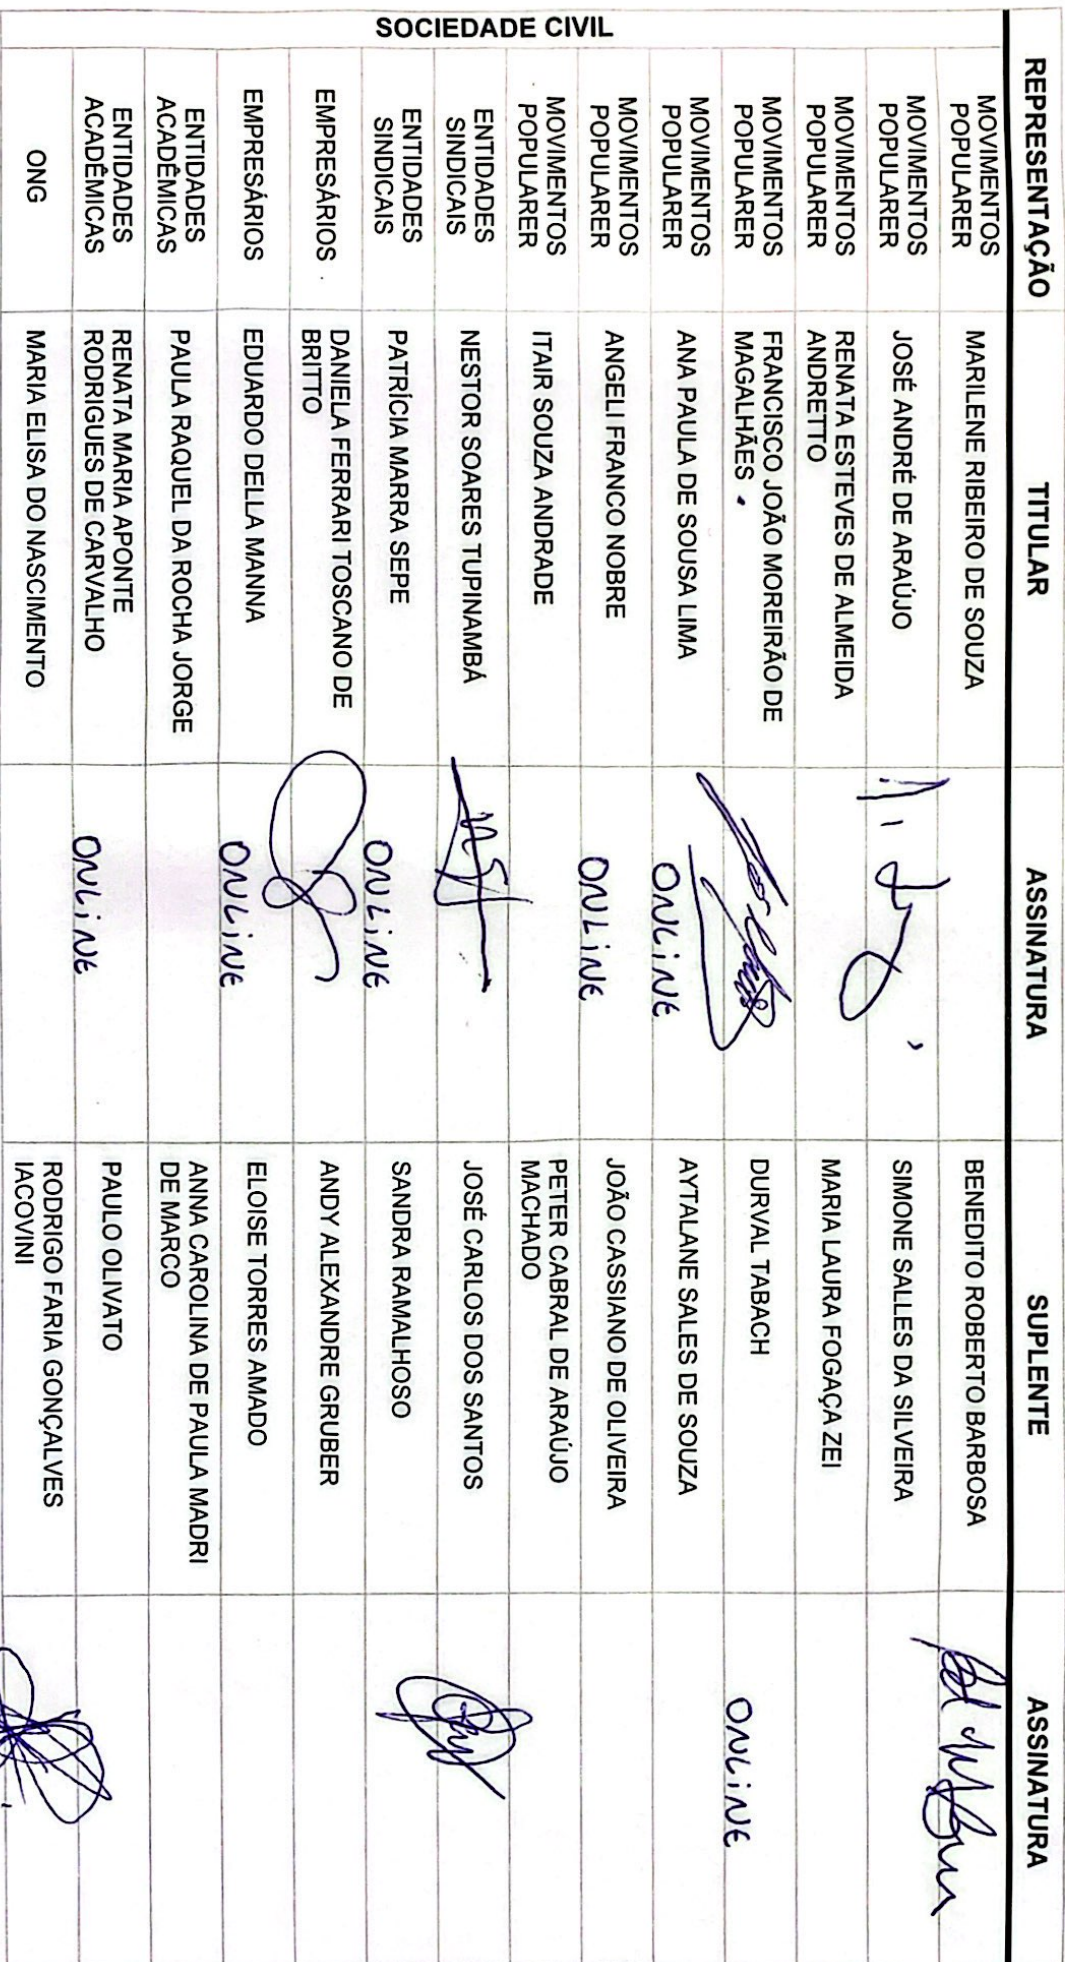 REPRESENTAÇÃO TITULAR ASSINATURA SUPLENTE ASSINATURA
SOCIEDADE CIVIL
MOVIMENTOS
POPULARER
MARILENE RIBEIRO DE SOUZA
BENEDITO ROBERTO BARBOSA
MOVIMENTOS
POPULARER
JOSÉ ANDRÉ DE ARAÚJO
SIMONE SALLES DA SILVEIRA
MOVIMENTOS
POPULARER
RENATA ESTEVES DE ALMEIDA
ANDRETTO
MARIA LAURA FOGAÇA ZEI
MOVIMENTOS
POPULARER
FRANCISCO JOÃO MOREIRÃO DE
MAGALHÃES
DURVAL TABACH
ONLINE
MOVIMENTOS
POPULARER
ANA PAULA DE SOUSA LIMA
ONLINE
AYTALANE SALES DE SOUZA
MOVIMENTOS
POPULARER
ANGELI FRANCO NOBRE
ONLINE
JOÃO CASSIANO DE OLIVEIRA
MOVIMENTOS
POPULARER
ITAIR SOUZA ANDRADE
PETER CABRAL DE ARAÚJO
MACHADO
ENTIDADES
SINDICAIS
NESTOR SOARES TUPINAMBÁ
JOSÉ CARLOS DOS SANTOS
ENTIDADES
SINDICAIS
PATRÍCIA MARRA SEPE
ONLINE
SANDRA RAMALHOSO
EMPRESÁRIOS
DANIELA FERRARI TOSCANO DE
BRITTO
ANDY ALEXANDRE GRUBER
EMPRESÁRIOS
EDUARDO DELLA MANNA
ONLINE
ELOISE TORRES AMADO
ENTIDADES
ACADÊMICAS
PAULA RAQUEL DA ROCHA JORGE
ANNA CAROLINA DE PAULA MADRI
DE MARCO
ENTIDADES
ACADÊMICAS
RENATA MARIA APONTE
RODRIGUES DE CARVALHO
ONLINE
PAULO OLIVATO
ONG
MARIA ELISA DO NASCIMENTO
RODRIGO FARIA GONÇALVES
IACOVINI